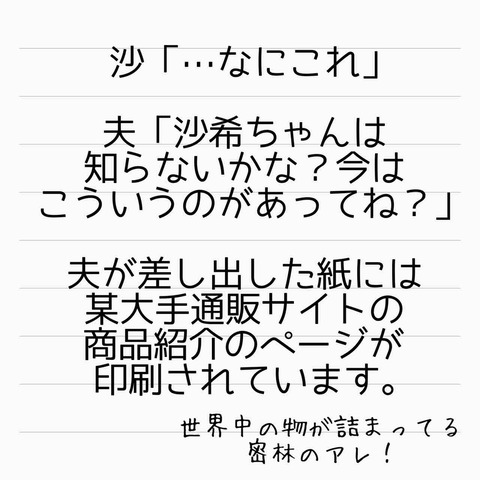 沙「…なにこれ」
夫「沙希ちゃんは
知らないかな？今は
こういうのがあってね？」
夫が差し出した紙には
某大手通販サイトの
商品紹介のページが
印刷されています。
世界中の物が詰まってる
密林のアレ！